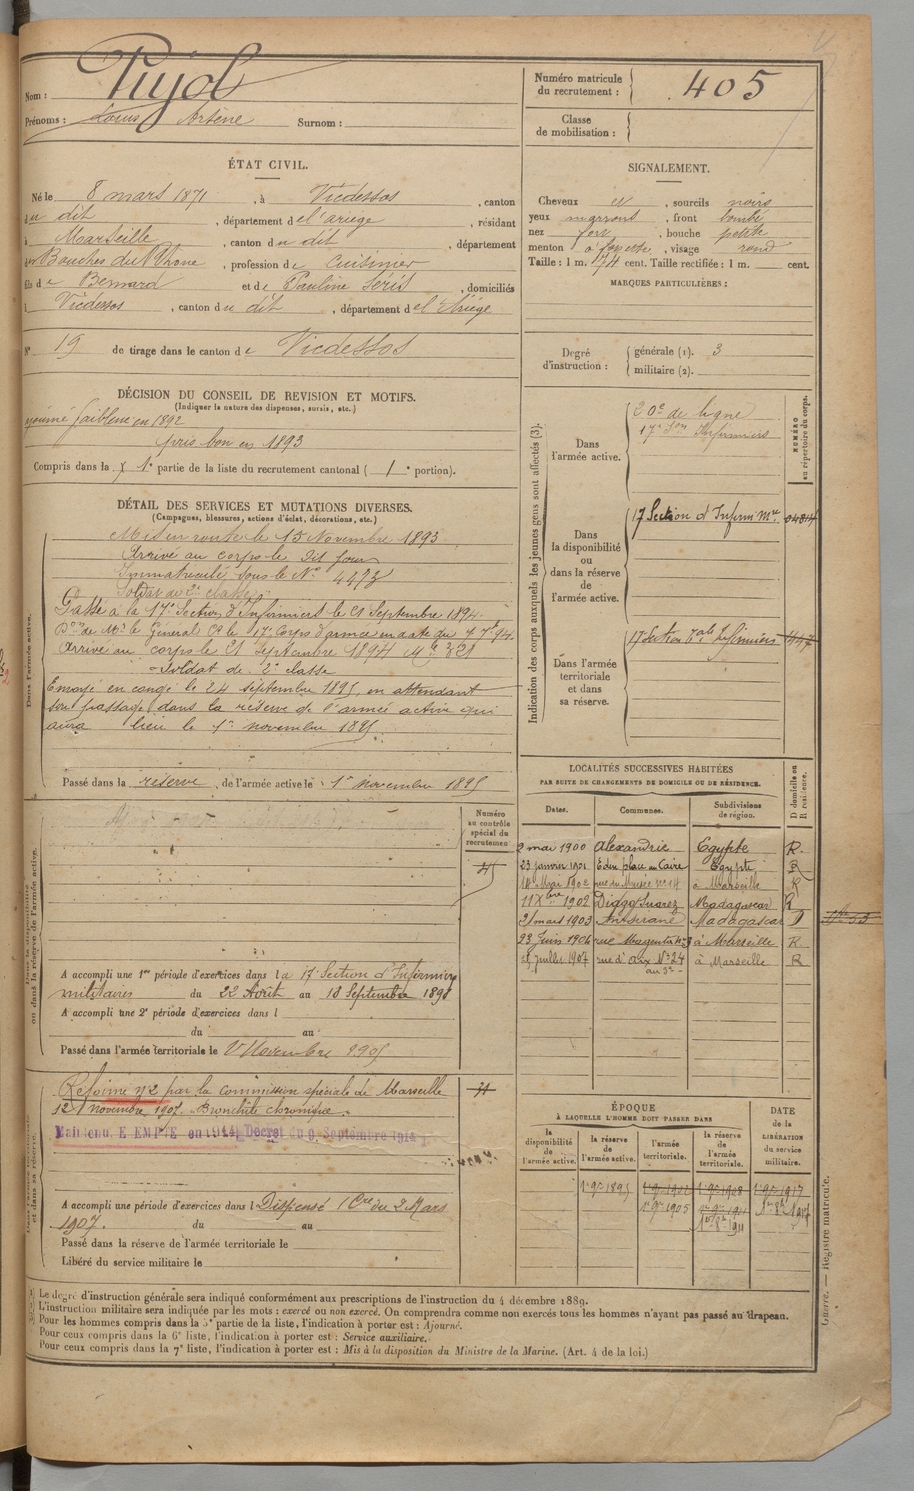 Nom : Pujol
Prénoms : Louis Arsène Surnom :
Numéro matricule du recrutement : 405
Classe de mobilisation :
ÉTAT CIVIL.
Né le 8 mars 1871, à Vicdessos, canton
du dit, département de l'ariège, résidant
à Marseille, canton du dit, département
des Bouches du Rhone, profession de cuisinier
fils de Bernard et de Pauline Séris, domiciliés
à Vicdessos, canton du dit, département de l'Ariège
N° 19 de tirage dans le canton de Vicdessos
SIGNALEMENT.
Cheveux et, sourcils noirs
yeux marrons, front bombé
nez fort, bouche petite
menton à fossette, visage rond
Taille : 1 m. 74 cent. Taille rectifiée : 1 m. cent.
MARQUES PARTICULIÈRES :
Degré d'instruction : générale (1). 3
militaire (2).
DÉCISION DU CONSEIL DE REVISION ET MOTIFS.
(Indiquer la nature des dispenses, sursis, etc.)
ajourné faiblesse en 1892
pris bon en 1893
Compris dans la 1e partie de la liste du recrutement cantonal ( 1e portion).
DÉTAIL DES SERVICES ET MUTATIONS DIVERSES.
(Campagnes, blessures, actions d'éclat, décorations, etc.)
Dans l'armée active.
Mis en route le 15 Novembre 1893
Arrivé au corps le dit jour
Immatriculé sous le N° 4473
Soldat de 2e classe
Passé à la 17e Section d'Infirmiers le 21 Septembre 1894
Don de Mr le Général Ct le 17e Corps d'armée en date du 7 7e 94
Arrivé au corps le 21 Septembre 1894 Mle 321
Soldat de 2e classe
Envoyé en congé le 24 septembre 1895, en attendant
son passage dans la réserve de l'armée active qui
aura lieu le 1er novembre 1895
Passé dans la réserve de l'armée active le 1er novembre 1895
Indication des corps auxquels les jeunes gens sont affectés (3).
NUMÉRO au répertoire du corps.
Dans l'armée active.
20e de ligne
17e Son Infirmiers
Dans la disponibilité ou dans la réserve de l'armée active.
17 Section d'Infirm Mre
Dans l'armée territoriale et dans sa réserve.
17 Section Tale Infirmiers
LOCALITÉS SUCCESSIVES HABITÉES
PAR SUITE DE CHANGEMENTS DE DOMICILE OU DE RÉSIDENCE.
Dates. Communes. Subdivisions de région. D domicile ou R résidence.
2 mai 1900 Alexandrie Egypte R.
23 janvier 1901 Eden place au Caire Egypte R
18 Mai 1902 rue du Musée N° 14 à Marseille R
11 Xbre 1902 Diego Suarez Madagascar R
21 mars 1903 Antsirane Madagascar D
23 Juin 1904 rue Magenta N° 9 à Marseille R
25 juillet 1907 rue d'Aix N° 24 à Marseille R
au 3e
Numéro au contrôle spécial du recrutement
45
A accompli une 1re période d'exercices dans la 17 Section d'Infirmiers
militaires du 22 Août au 18 Septembre 1898
A accompli une 2e période d'exercices dans l
du au
Passé dans l'armée territoriale le 1 Novembre 1905
Réformé N° 2 par la commission spéciale de Marseille
12 novembre 1907. Bronchite chronique.
Maintenu EXEMPTÉ en 1914 Décret du 9 Septembre 1914
A accompli une période d'exercices dans l Dispensé (Cre du 2 Mars
1907. du au
Passé dans la réserve de l'armée territoriale le
Libéré du service militaire le
ÉPOQUE
À LAQUELLE L'HOMME DOIT PASSER DANS
DATE DE LA LIBÉRATION du service militaire.
la disponibilité de l'armée active. la réserve de l'armée active. l'armée territoriale. la réserve de l'armée territoriale.
1er 9bre 1895 1er 9bre 1908 1er 9bre 1917
1er 9bre 1905 1er 9bre 1911
1er 8bre 1911
Guerre. — Registre matricule.
Le degré d'instruction générale sera indiqué conformément aux prescriptions de l'instruction du 4 décembre 1889.
L'instruction militaire sera indiquée par les mots : exercé ou non exercé. On comprendra comme non exercés tous les hommes n'ayant pas passé au drapeau.
Pour les hommes compris dans la 5e partie de la liste, l'indication à porter est : Ajourné.
Pour ceux compris dans la 6e liste, l'indication à porter est : Service auxiliaire.
Pour ceux compris dans la 7e liste, l'indication à porter est : Mis à la disposition du Ministre de la Marine. (Art. 4 de la loi.)